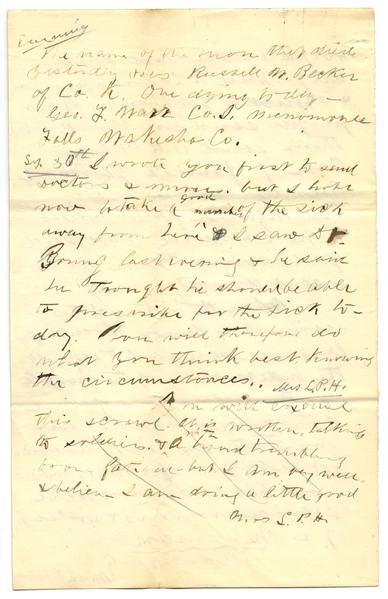 Evening
The name of the man that died
yesterday was Russell W. Becker
of Co. K. One dying to day —
Geo. F. Warr Co. I. Menomonee
Falls Wakesha Co.
Sep. 30th I wrote you first to send
Doctors & nurses. but I hope
now to take a good number of the sick
away from here & I saw Dr
last evening & he said
he thought he should be able
to prescribe for the sick to-
day. You will therefore do
what you think best, knowing
the circumstances. Mrs L.P.H.
You will excuse
this scrawl. It is written, talking
to soldiers, & a hand trembling
from fatigue but I am very well
& believe I am doing a little good
Mrs L. P. H.